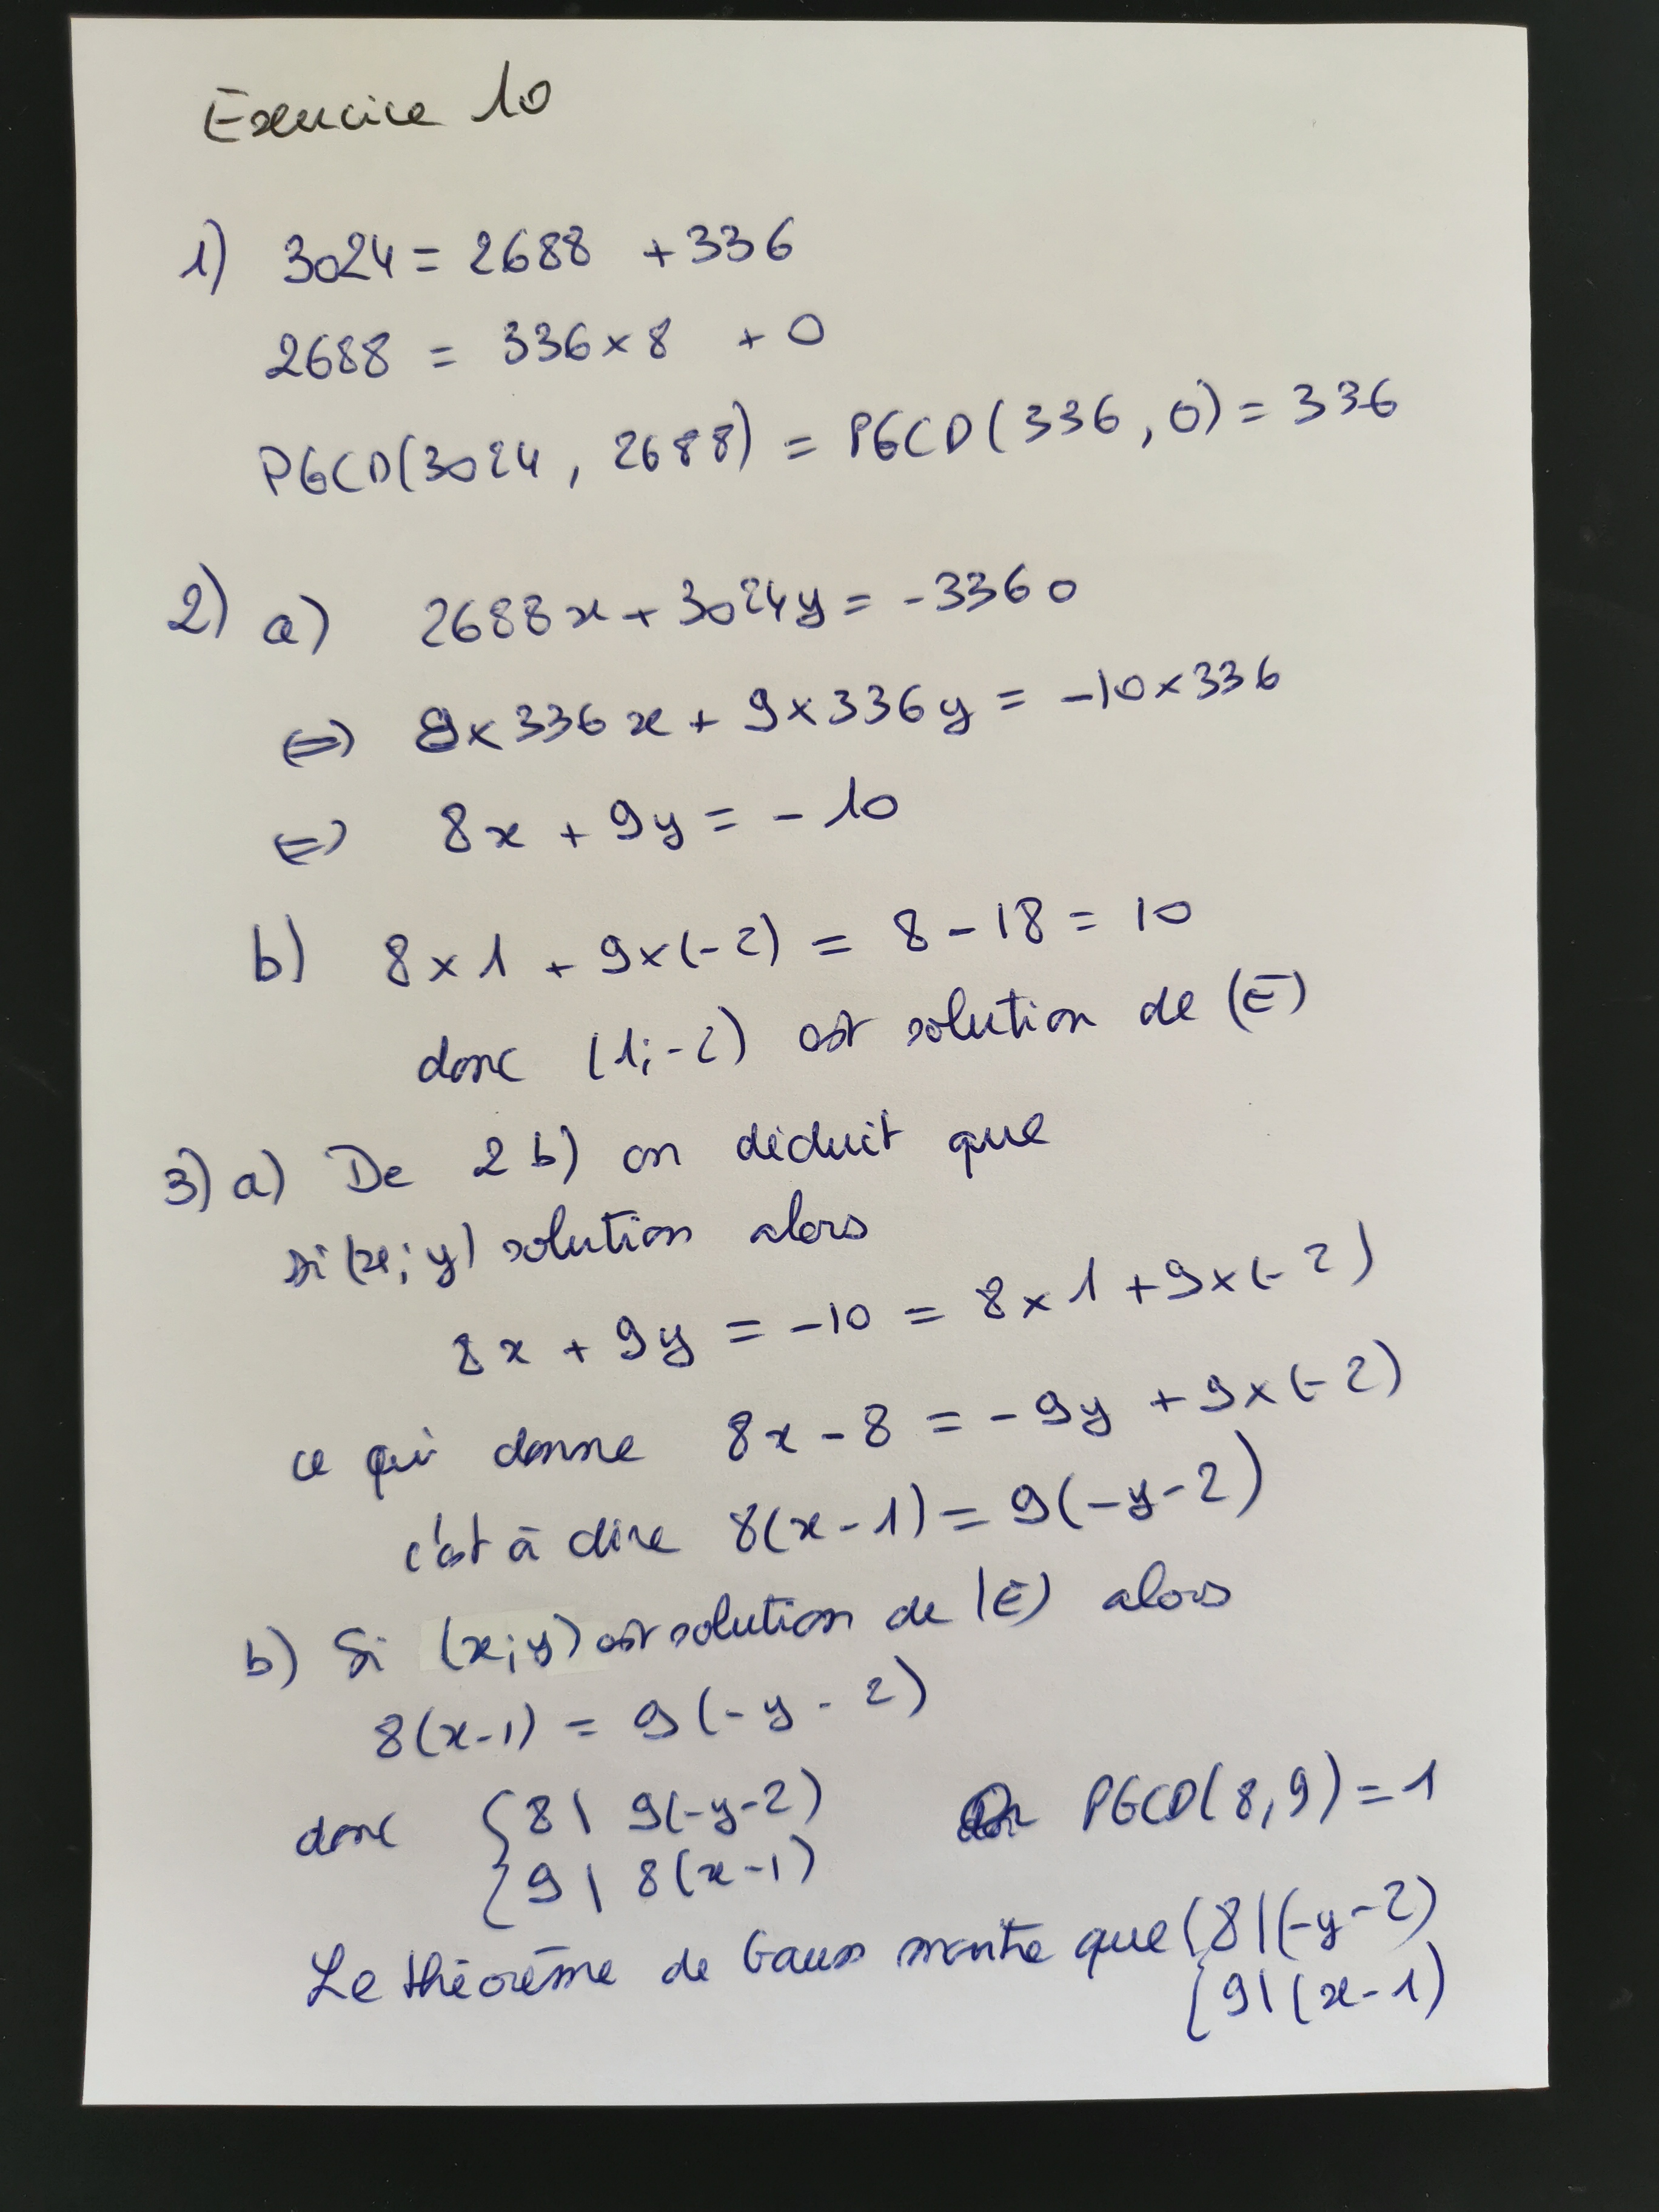 Exercice 10
1) 3024 = 2688 + 336
2688 = 336 × 8 + 0
PGCD(3024, 2688) = PGCD(336, 0) = 336
2) a) 2688x + 3024y = -3360
⇔ 8×336x + 9×336y = -10×336
⇔ 8x + 9y = -10
b) 8×1 + 9×(-2) = 8 - 18 = 10
donc (1;-2) est solution de (E)
3) a) De 2b) on déduit que
si (x;y) solution alors
8x + 9y = -10 = 8×1 + 9×(-2)
ce qui donne 8x - 8 = -9y + 9×(-2)
c'est à dire 8(x-1) = 9(-y-2)
b) Si (x;y) est solution de (E) alors
8(x-1) = 9(-y-2)
donc { 8 | 9(-y-2) Or PGCD(8,9) = 1
9 | 8(x-1)
Le théorème de Gauss montre que { 8 | (-y-2)
9 | (x-1)